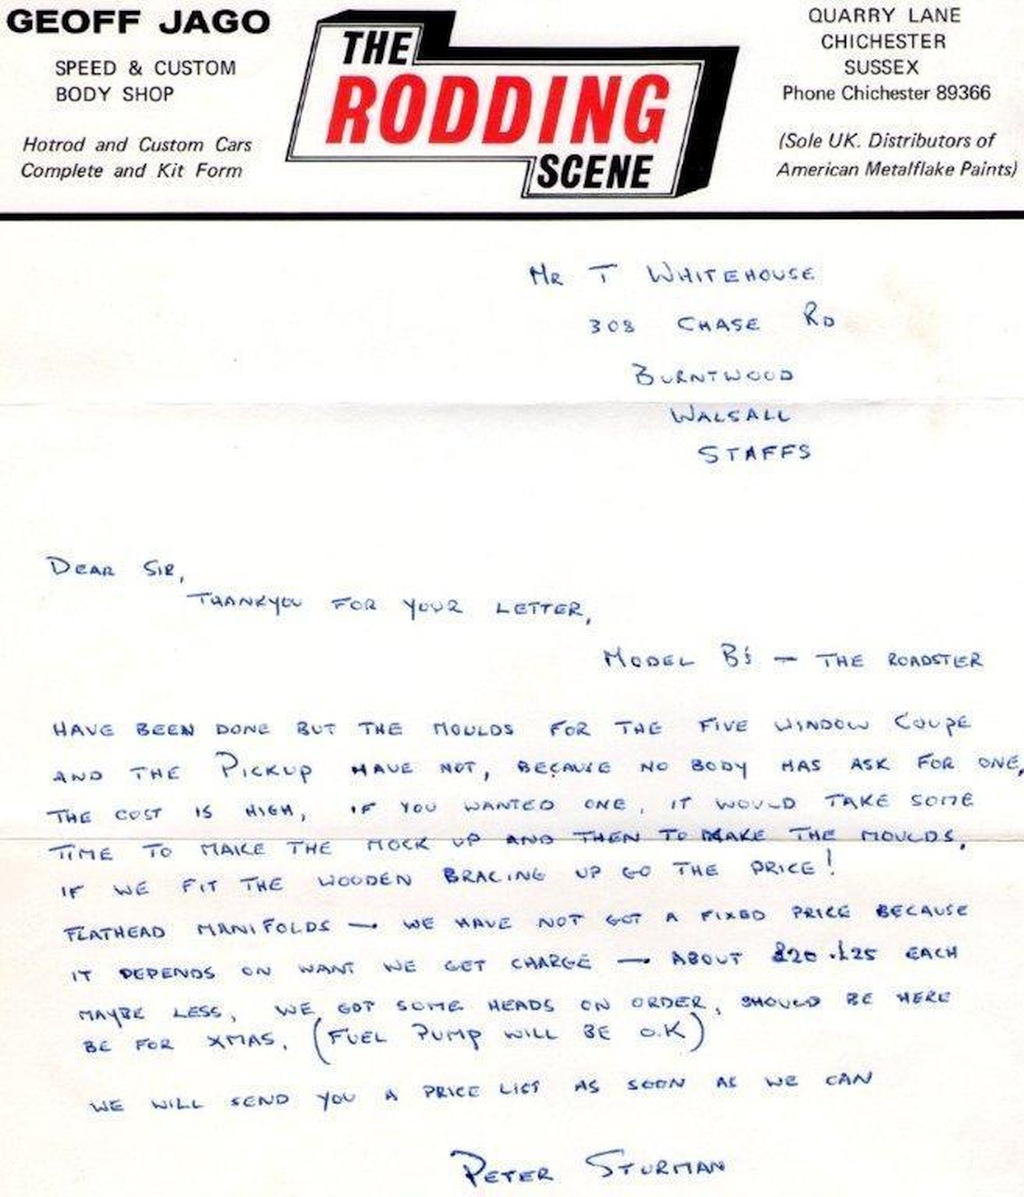 GEOFF JAGO
SPEED & CUSTOM
BODY SHOP
Hotrod and Custom Cars
Complete and Kit Form
THE
RODDING
SCENE
QUARRY LANE
CHICHESTER
SUSSEX
Phone Chichester 89366
(Sole UK. Distributors of
American Metalflake Paints)
MR T WHITEHOUSE
308 CHASE RD
BURNTWOOD
WALSALL
STAFFS
DEAR SIR,
THANKYOU FOR YOUR LETTER,
MODEL B's — THE ROADSTER
HAVE BEEN DONE BUT THE MOULDS FOR THE FIVE WINDOW COUPE
AND THE PICKUP HAVE NOT, BECAUSE NO BODY HAS ASK FOR ONE,
THE COST IS HIGH, IF YOU WANTED ONE, IT WOULD TAKE SOME
TIME TO MAKE THE MOCK UP AND THEN TO MAKE THE MOULDS,
IF WE FIT THE WOODEN BRACING UP GO THE PRICE!
FLATHEAD MANIFOLDS — WE HAVE NOT GOT A FIXED PRICE BECAUSE
IT DEPENDS ON WANT WE GET CHARGE — ABOUT £20-£25 EACH
MAYBE LESS, WE GOT SOME HEADS ON ORDER, SHOULD BE HERE
BE FOR XMAS. (FUEL PUMP WILL BE O.K)
WE WILL SEND YOU A PRICE LIST AS SOON AS WE CAN
PETER STURMAN